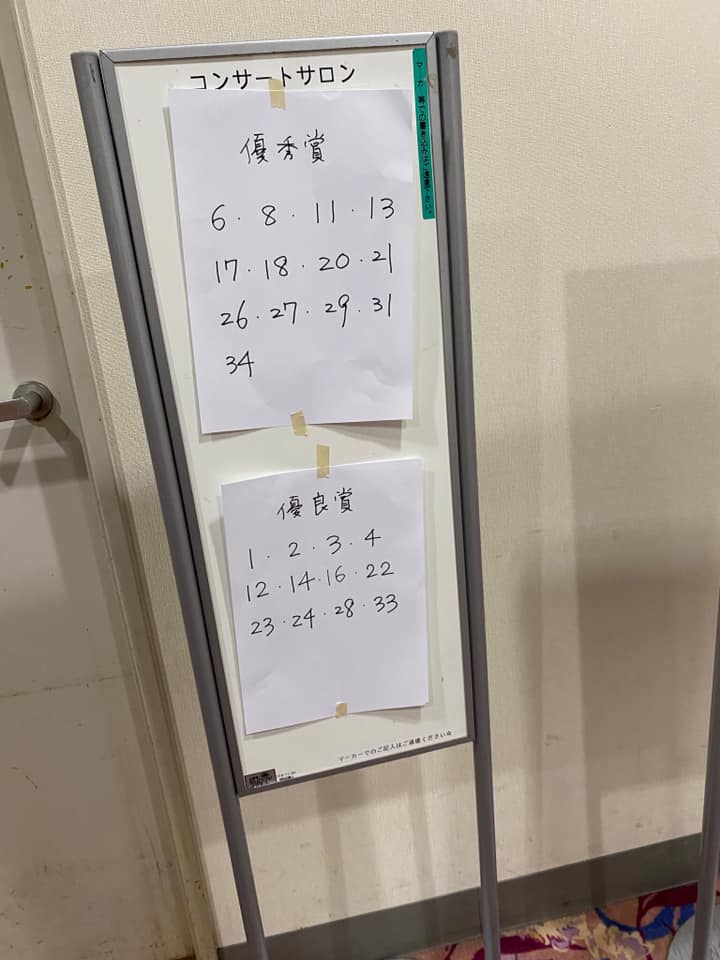 コンサートサロン
優秀賞
6・8・11・13
17・18・20・21
26・27・29・31
34
優良賞
1・2・3・4
12・14・16・22
23・24・28・33
マーカーでのご記入はご遠慮ください☆